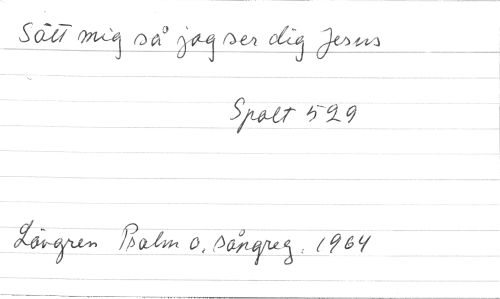 Sätt mig så jag ser dig Jesus
Spalt 529
Lövgren Psalm o. sångreg. 1964